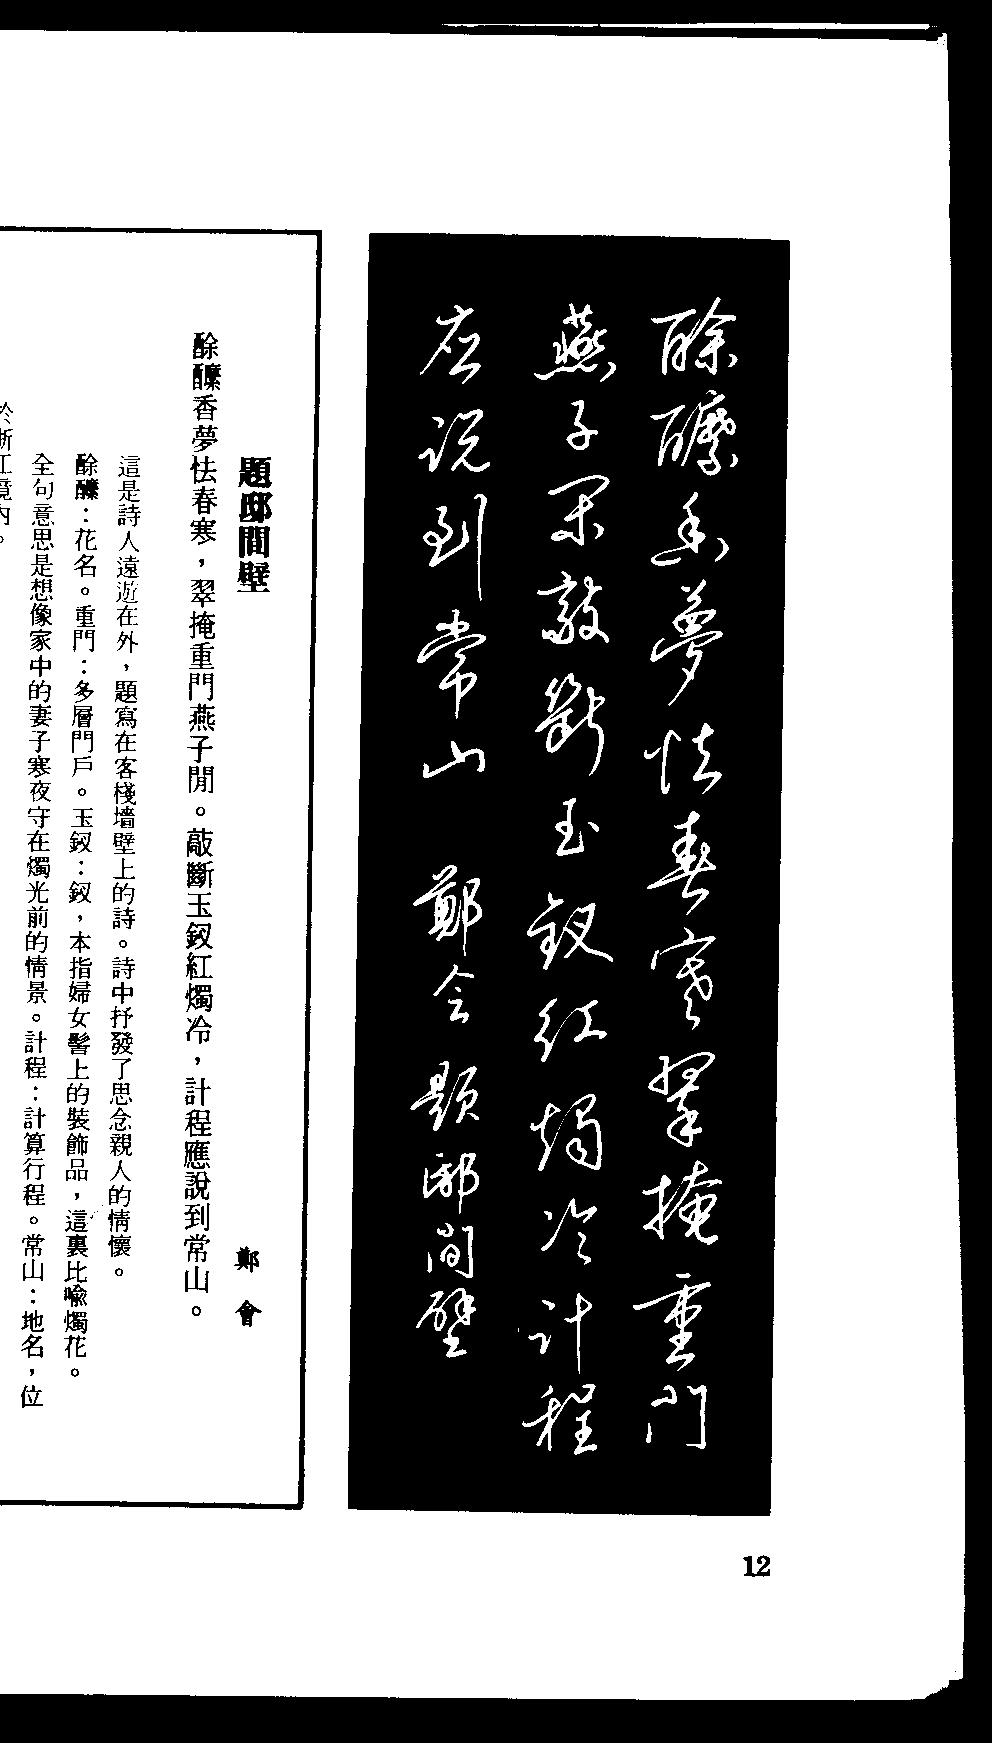 酴醾香夢怯春寒翠掩重門
燕子閑敲斷玉釵紅燭冷計程
应说到常山 鄭会 題邸間壁
題邸間壁 鄭會
酴醾香夢怯春寒，翠掩重門燕子閒。敲斷玉釵紅燭冷，計程應說到常山。
這是詩人遠遊在外，題寫在客棧墻壁上的詩。詩中抒發了思念親人的情懷。
酴醾：花名。重門：多層門戶。玉釵：釵，本指婦女髻上的裝飾品，這裏比喻燭花。
全句意思是想像家中的妻子寒夜守在燭光前的情景。計程：計算行程。常山：地名，位
於浙江境內。
12